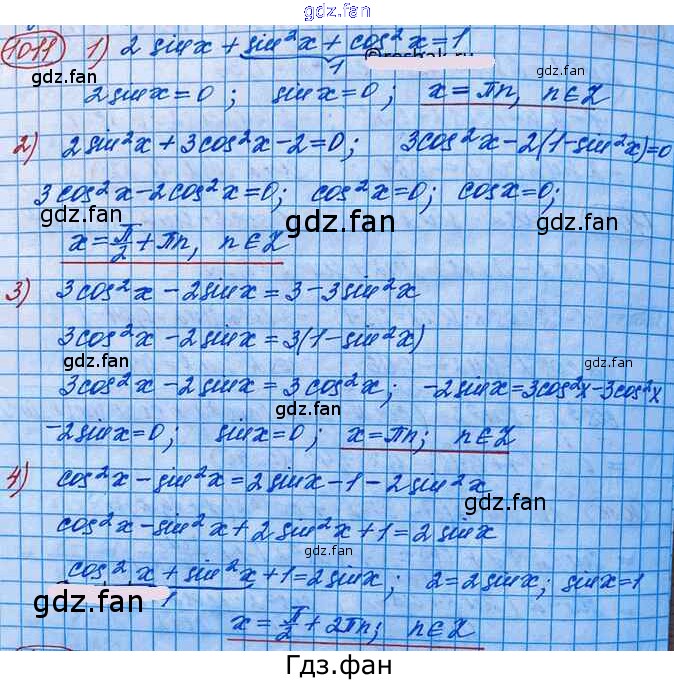 gdz.fan
1011 1) 2 sinx + sin²x + cos²x = 1
gdz.fan gdz.fan
1
2sinx = 0; sinx = 0; x = πn, n∈Z
gdz.fan
2) 2sin²x + 3cos²x - 2 = 0; 3cos²x - 2(1 - sin²x) = 0
3cos²x - 2cos²x = 0; cos²x = 0; cosx = 0;
gdz.fan gdz.fan gdz.fan
x = π/2 + πn, n∈Z
3) 3cos²x - 2sinx = 3 - 3sin²x
3cos²x - 2sinx = 3(1 - sin²x)
gdz.fan gdz.fan
3cos²x - 2sinx = 3cos²x; -2sinx = 3cos²x - 3cos²x
gdz.fan
-2sinx = 0; sinx = 0; x = πn; n∈Z
4) cos²x - sin²x = 2sinx - 1 - 2sin²x
gdz.fan
cos²x - sin²x + 2sin²x + 1 = 2sinx
gdz.fan
cos²x + sin²x + 1 = 2sinx; 2 = 2sinx; sinx = 1
gdz.fan 1 gdz.fan
x = π/2 + 2πn; n∈Z
Гдз.фан